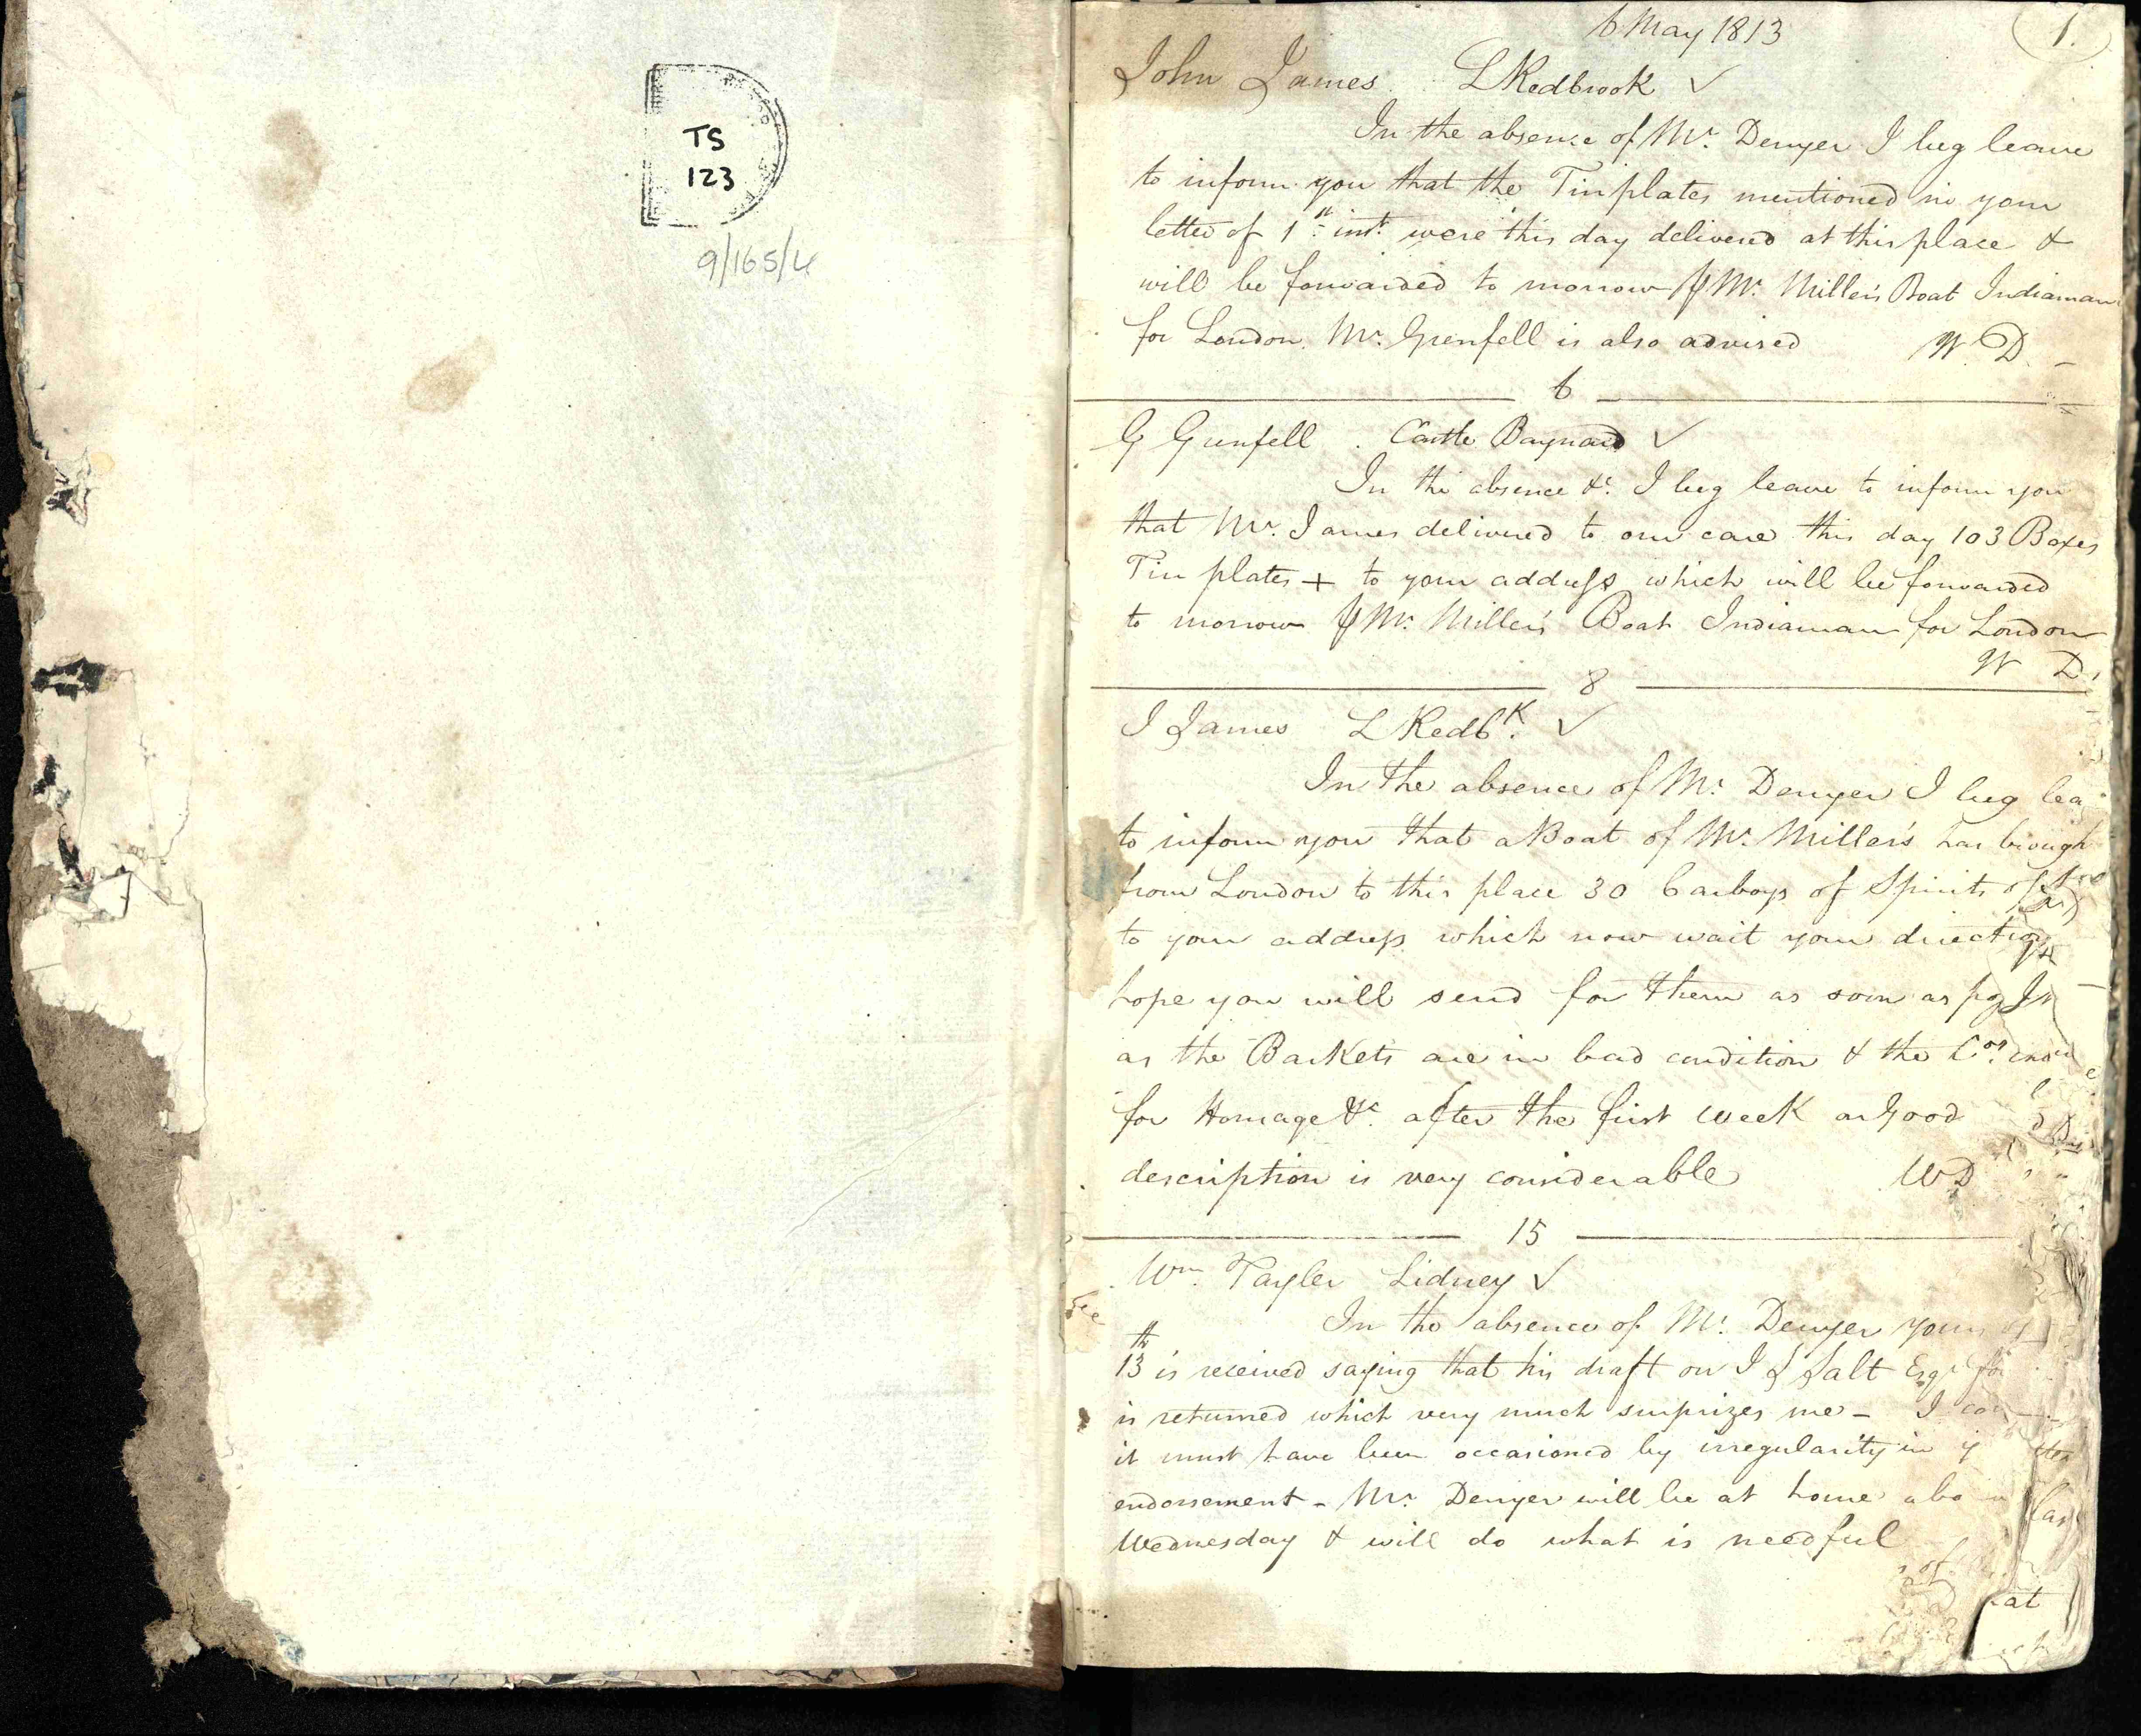 TS
123
9/165/4
6 May 1813
1.
John James L Redbrook ✓
In the absence of Mr. Denyer I beg leave
to inform you that the Tinplates mentioned in your
letter of 1st. inst. were this day delivered at this place &
will be forwarded to morrow Mr. Miller's Boat Indiaman
for London. Mr. Grenfell is also advised W. D.
6
G Grenfell . Castle Baynard ✓
In the absence &c. I beg leave to inform you
that Mr. James delivered to our care this day 103 Boxes
Tin plates + to your address which will be forwarded
to morrow Mr. Miller's Boat Indiaman for London
W D.
8
J James L Redbk. ✓
In the absence of Mr. Denyer I beg lea
to inform you that a Boat of Mr. Miller's has brough
from London to this place 30 Carboys of Spirits of
to your address which now wait your direction
hope you will send for them as soon as
as the Baskets are in bad condition & the
for Homage &c. after the first Week as Good
description is very considerable WD
15
Wm. Tayler Lidney ✓
In the absence of Mr. Denyer yours of
13th is received saying that his draft on J S Salt Esqr for
is returned which very much surprizes me – I con
it must have been occasioned by irregularity in y
endorsement – Mr. Denyer will be at home abo
Wednesday & will do what is needful
at